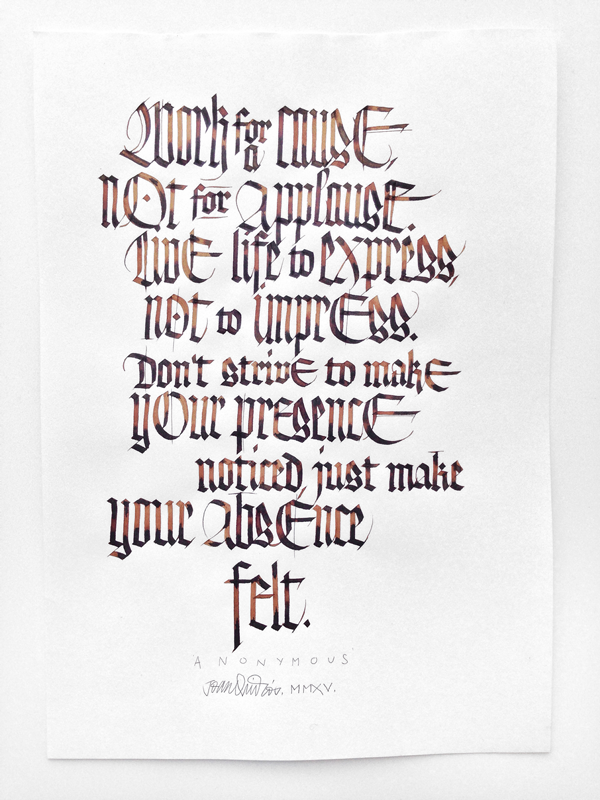 Work for a cause,
not for applause.
Live life to express,
not to impress.
Don't strive to make
your presence
noticed just make
your absence
felt.
'ANONYMOUS'
Joan Quirós. MMXV.